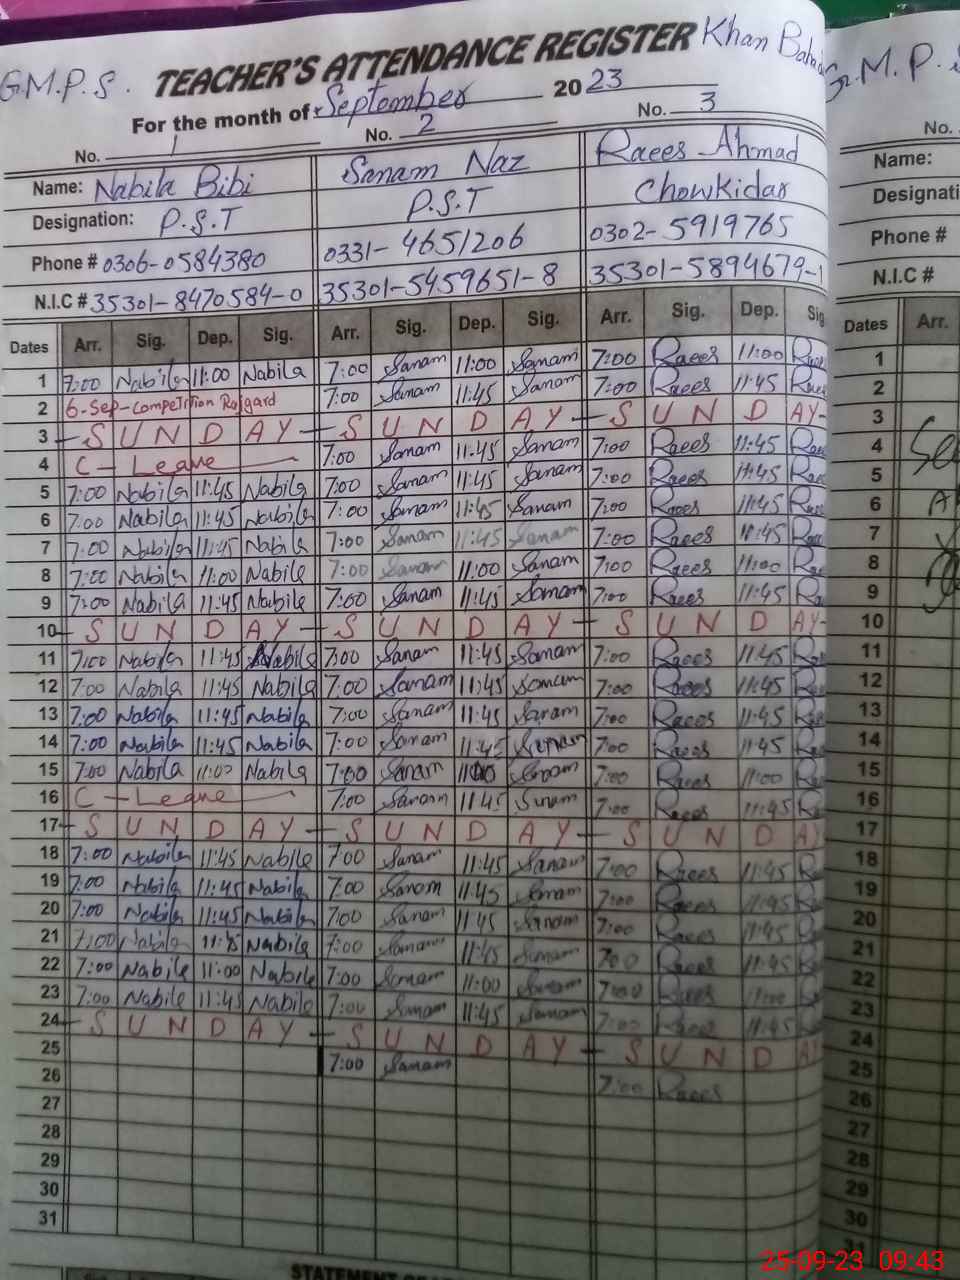 G.M.P.S. TEACHER'S ATTENDANCE REGISTER Khan
For the month of September 2023
No. 1 No. 2 No. 3
Name: Nabila Bibi Sanam Naz Raees Ahmad
Designation: P.S.T P.S.T Chowkidar
Phone # 0306-0584380 0331-4651206 0302-5919765
N.I.C # 35301-8470584-0 35301-5459651-8 35301-5894679-1
Dates Arr. Sig. Dep. Sig. Arr. Sig. Dep. Sig. Arr. Sig. Dep. Sig
1 7:00 Nabila 11:00 Nabila 7:00 Sanam 11:00 Sanam 7:00 Raees 11:00
2 6-Sep-competition 7:00 Sanam 11:45 Sanam 7:00 Raees 11:45
3 SUNDAY SUNDAY SUNDAY
4 C-Leave 7:00 Sanam 11:45 Sanam 7:00 Raees 11:45
5 7:00 Nabila 11:45 Nabila 7:00 Sanam 11:45 Sanam 7:00 Raees 11:45
6 7:00 Nabila 11:45 Nabila 7:00 Sanam 11:45 Sanam 7:00 Raees 11:45
7 7:00 Nabila 11:45 Nabila 7:00 Sanam 11:45 Sanam 7:00 Raees 11:45
8 7:00 Nabila 11:00 Nabila 7:00 Sanam 11:00 Sanam 7:00 Raees 11:00
9 7:00 Nabila 11:45 Nabila 7:00 Sanam 11:45 Sanam 7:00 Raees 11:45
10 SUNDAY SUNDAY SUNDAY
11 7:00 Nabila 11:45 Nabila 7:00 Sanam 11:45 Sanam 7:00 Raees 11:45
12 7:00 Nabila 11:45 Nabila 7:00 Sanam 11:45 Sanam 7:00 Raees 11:45
13 7:00 Nabila 11:45 Nabila 7:00 Sanam 11:45 Sanam 7:00 Raees 11:45
14 7:00 Nabila 11:45 Nabila 7:00 Sanam 11:45 Sanam 7:00 Raees 11:45
15 7:00 Nabila 11:00 Nabila 7:00 Sanam 11:00 Sanam 7:00 Raees 11:00
16 C-Leave 7:00 Sanam 11:45 Sanam 7:00 Raees 11:45
17 SUNDAY SUNDAY SUNDAY
18 7:00 Nabila 11:45 Nabila 7:00 Sanam 11:45 Sanam 7:00 Raees 11:45
19 7:00 Nabila 11:45 Nabila 7:00 Sanam 11:45 Sanam 7:00 Raees 11:45
20 7:00 Nabila 11:45 Nabila 7:00 Sanam 11:45 Sanam 7:00 Raees 11:45
21 7:00 Nabila 11:45 Nabila 7:00 Sanam 11:45 Sanam 7:00 Raees 11:45
22 7:00 Nabila 11:00 Nabila 7:00 Sanam 11:00 Sanam 7:00 Raees 11:00
23 7:00 Nabila 11:45 Nabila 7:00 Sanam 11:45 Sanam 7:00 Raees 11:45
24 SUNDAY SUNDAY SUNDAY
25 7:00 Sanam 7:00 Raees
26
27
28
29
30
31
M.P.
No.
Name:
Designati
Phone #
N.I.C #
Dates Arr.
1
2
3
4
5
6
7
8
9
10
11
12
13
14
15
16
17
18
19
20
21
22
23
24
25
26
27
28
29
30
31
STATEMENT
25-09-23 09:43